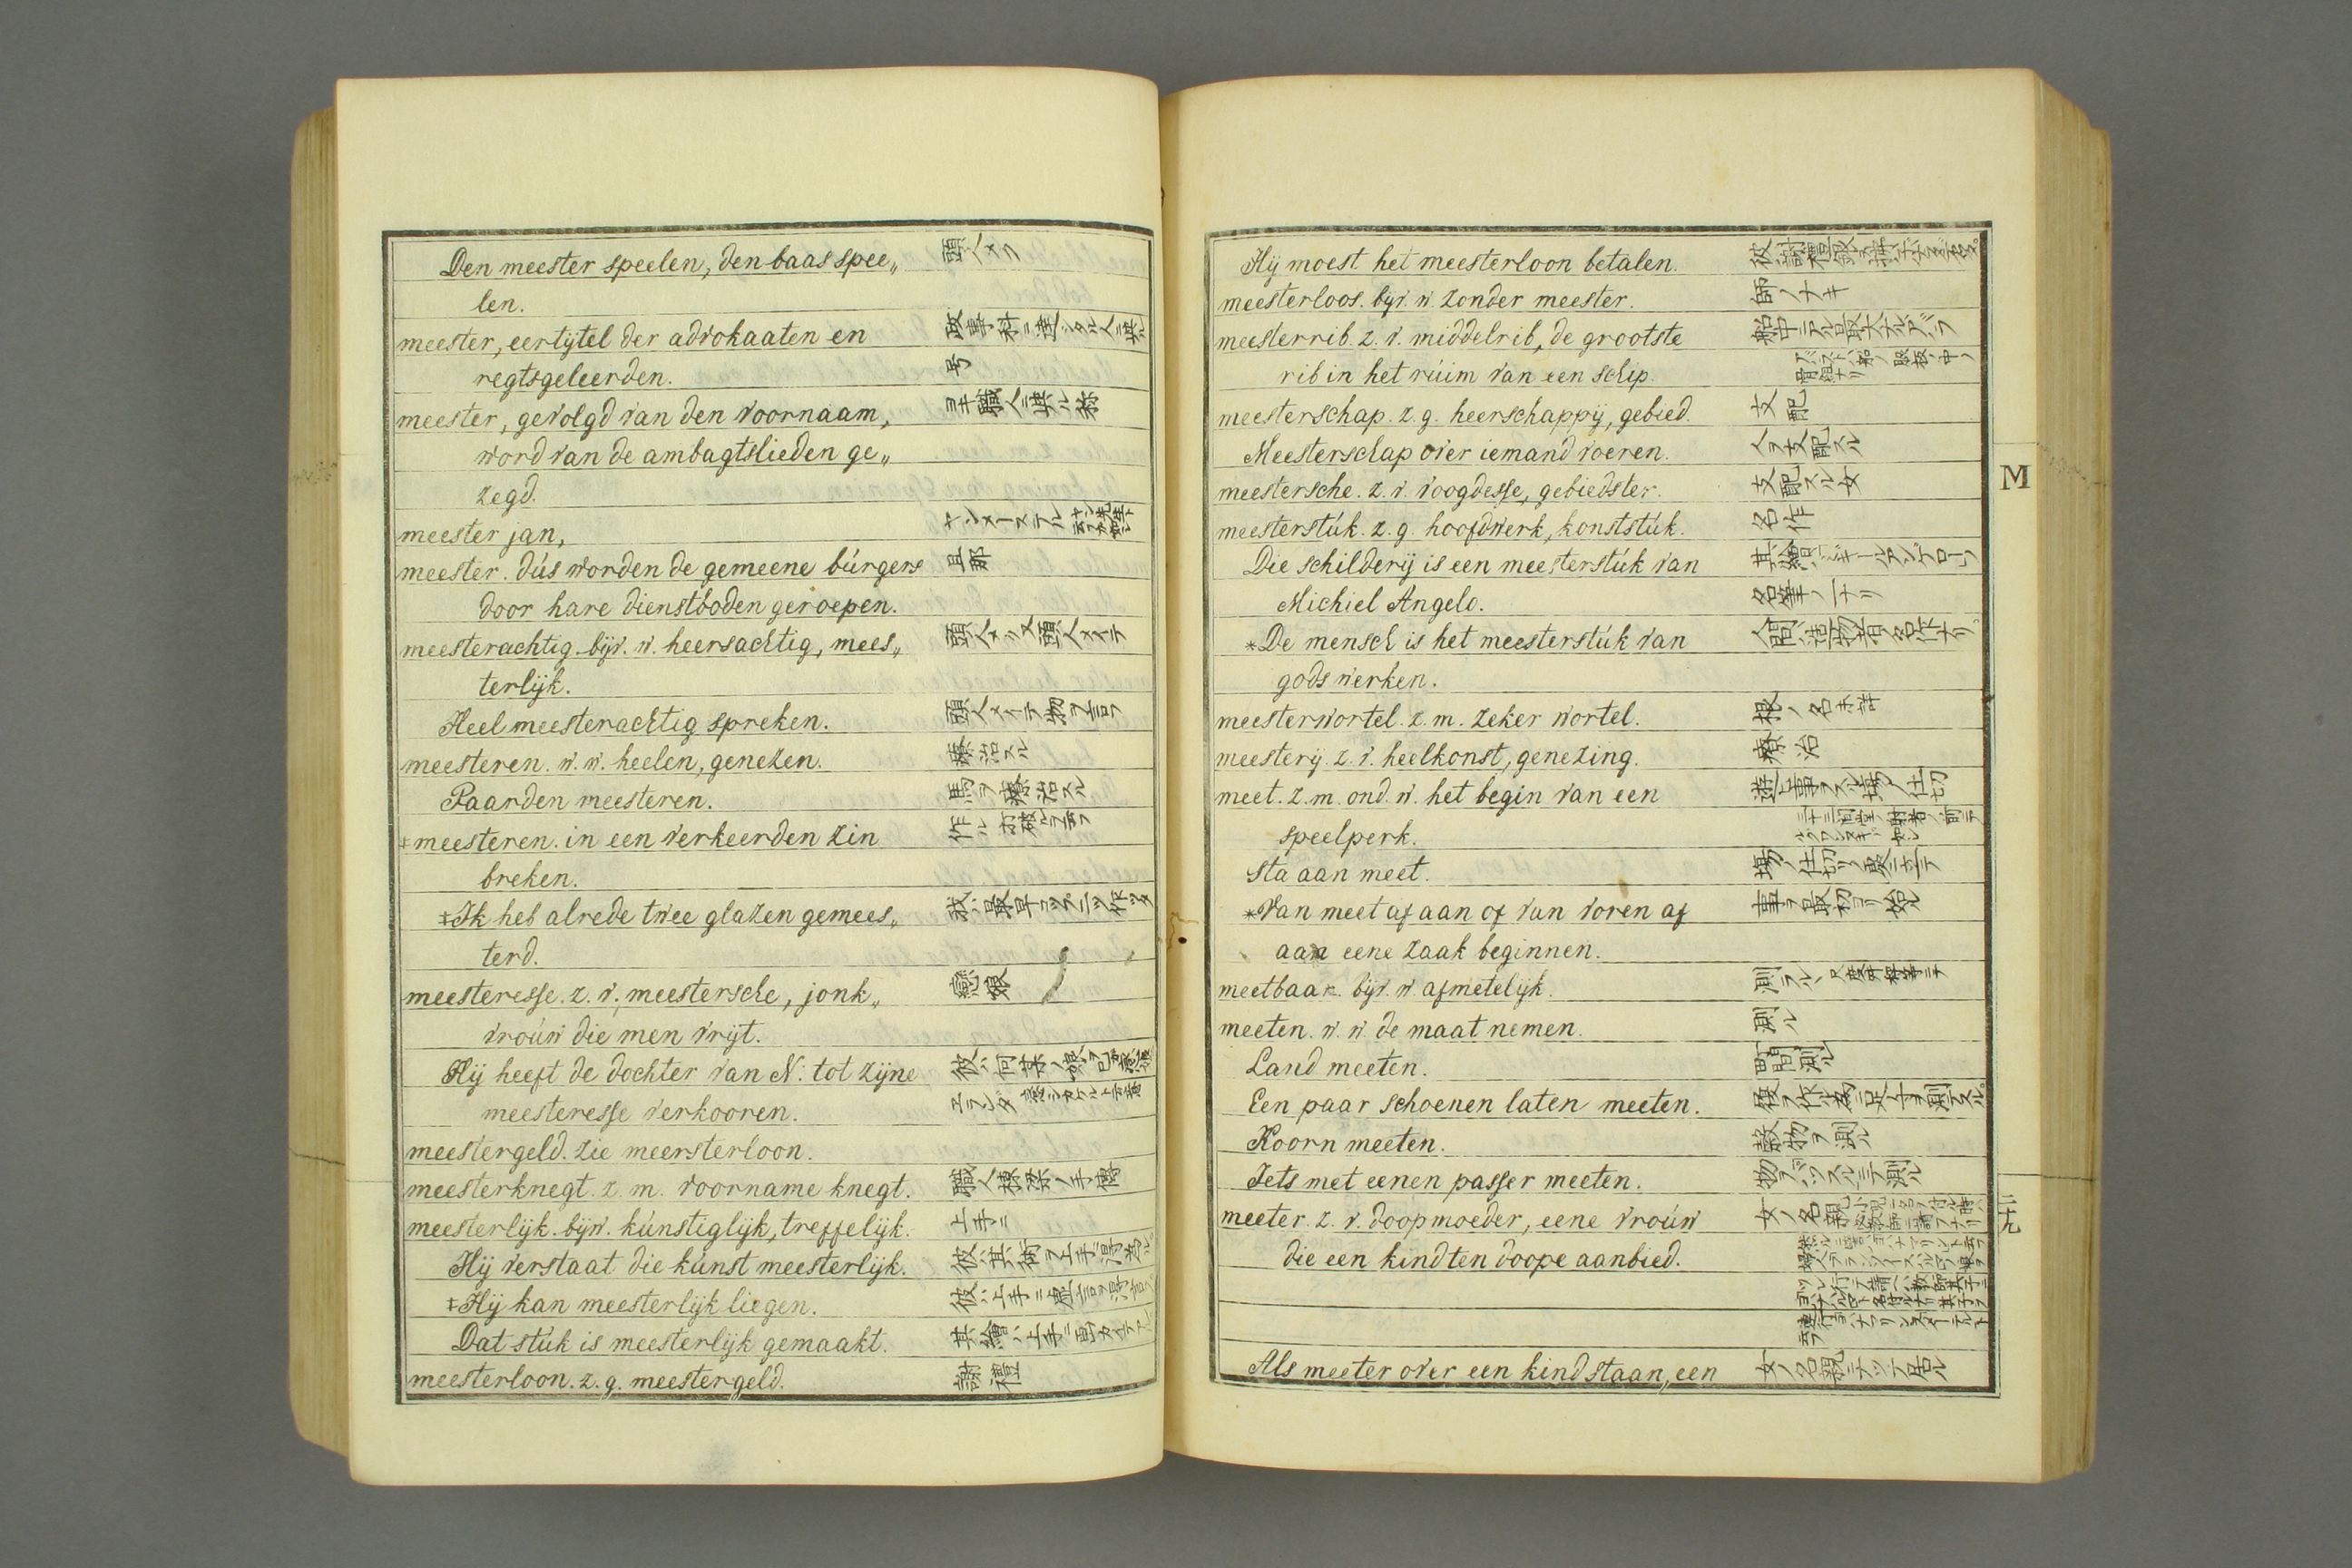 Den meester speelen, den baas spee„ 頭人メク
len.
meester, eertijtel der advokaaten en 政事科ニ達シタル人ニ與ル
regtsgeleerden. 号
meester, gevolgd van den voornaam, ヨキ職人ニ與ル称
word van de ambagtslieden ge„
zegd.
meester jan, ヤンメーステル
meester. dús worden de gemeene búrgers 旦那
door hare dienstboden geroepen.
meesterachtig. bijv. w. heersachtig, mees„ 頭人メク又頭人メイテ
terlijk.
Heel meesterachtig spreken. 頭人メイテ物ヲ言フ
meesteren. w. w. heelen, genezen. 療治スル
Paarden meesteren. 馬ヲ療治スル
‡meesteren. in een verkeerden zin 作ル
breken.
‡Ik heb alrede twee glazen gemees„
terd.
meesteresse. z. v. meestersche, jonk„ 戀娘
vroúw die men vrijt.
Hij heeft de dochter van N. tot zijne
meesteresse verkooren. エランダ
meestergeld. zie meersterloon.
meesterknegt. z. m. voorname knegt. 職人棟梁ノ手傳
meesterlijk. bijw. kúnstiglijk, treffelijk. 上手ニ
Hij verstaat die kúnst meesterlijk.
‡Hij kan meesterlijk liegen. 彼ハ上手ニ虚言ヲ得言フ
Dat stúk is meesterlijk gemaakt. 其繪ハ上手ニ画カキテアル
meesterloon. z. g. meestergeld. 謝禮
Hij moest het meesterloon betalen.
meesterloos. bijv. w. zonder meester. 師ノナキ
meesterrib. z. v. middelrib, de grootste
rib in het rúim van een schip.
meesterschap. z. g. heerschappij, gebied. 支配
Meesterschap over iemand voeren. 人ヲ支配スル
meestersche. z. v. voogdesse, gebiedster. 支配スル女
meesterstúk. z. g. hoofdwerk, konststúk. 名作
Die schilderij is een meesterstúk van
Michiel Angelo. 名筆ノ一ナリ
*De mensch is het meesterstúk van 人間ハ造物者ノ名作ナリ
gods werken.
meesterwortel. z. m. zeker wortel. 根ノ名 未詳
meesterij. z. v. heelkonst, genezing. 療治
meet. z. m. ond. w. het begin van een 遊事ヲスル場ノ仕切
speelperk.
Sta aan meet. 場ノ仕切ツタ處ニ立テ
*Van meet af aan of van voren af 事ヲ最初ヨリ始ル
aan eene zaak beginnen.
meetbaar. bijv. w. afmetelijk. 測ラルヽ
meeten. w. w. de maat nemen. 測ル
Land meeten. 町間測ル
Een paar schoenen laten meeten.
Koorn meeten. 穀物ヲ測ル
Iets met eenen passer meeten. 物ヲパッスルニテ測ル
meeter. z. v. doopmoeder, eene vroúw 女ノ名親
die een kind ten doope aanbied.
Als meeter over een kind staan, een 女ノ名親ニナッテ居ル
M
二十九